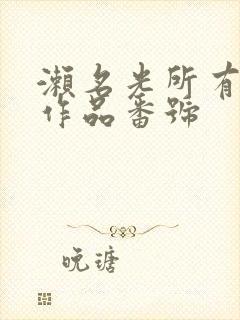 瀨名光所有
作品番號
晚璡